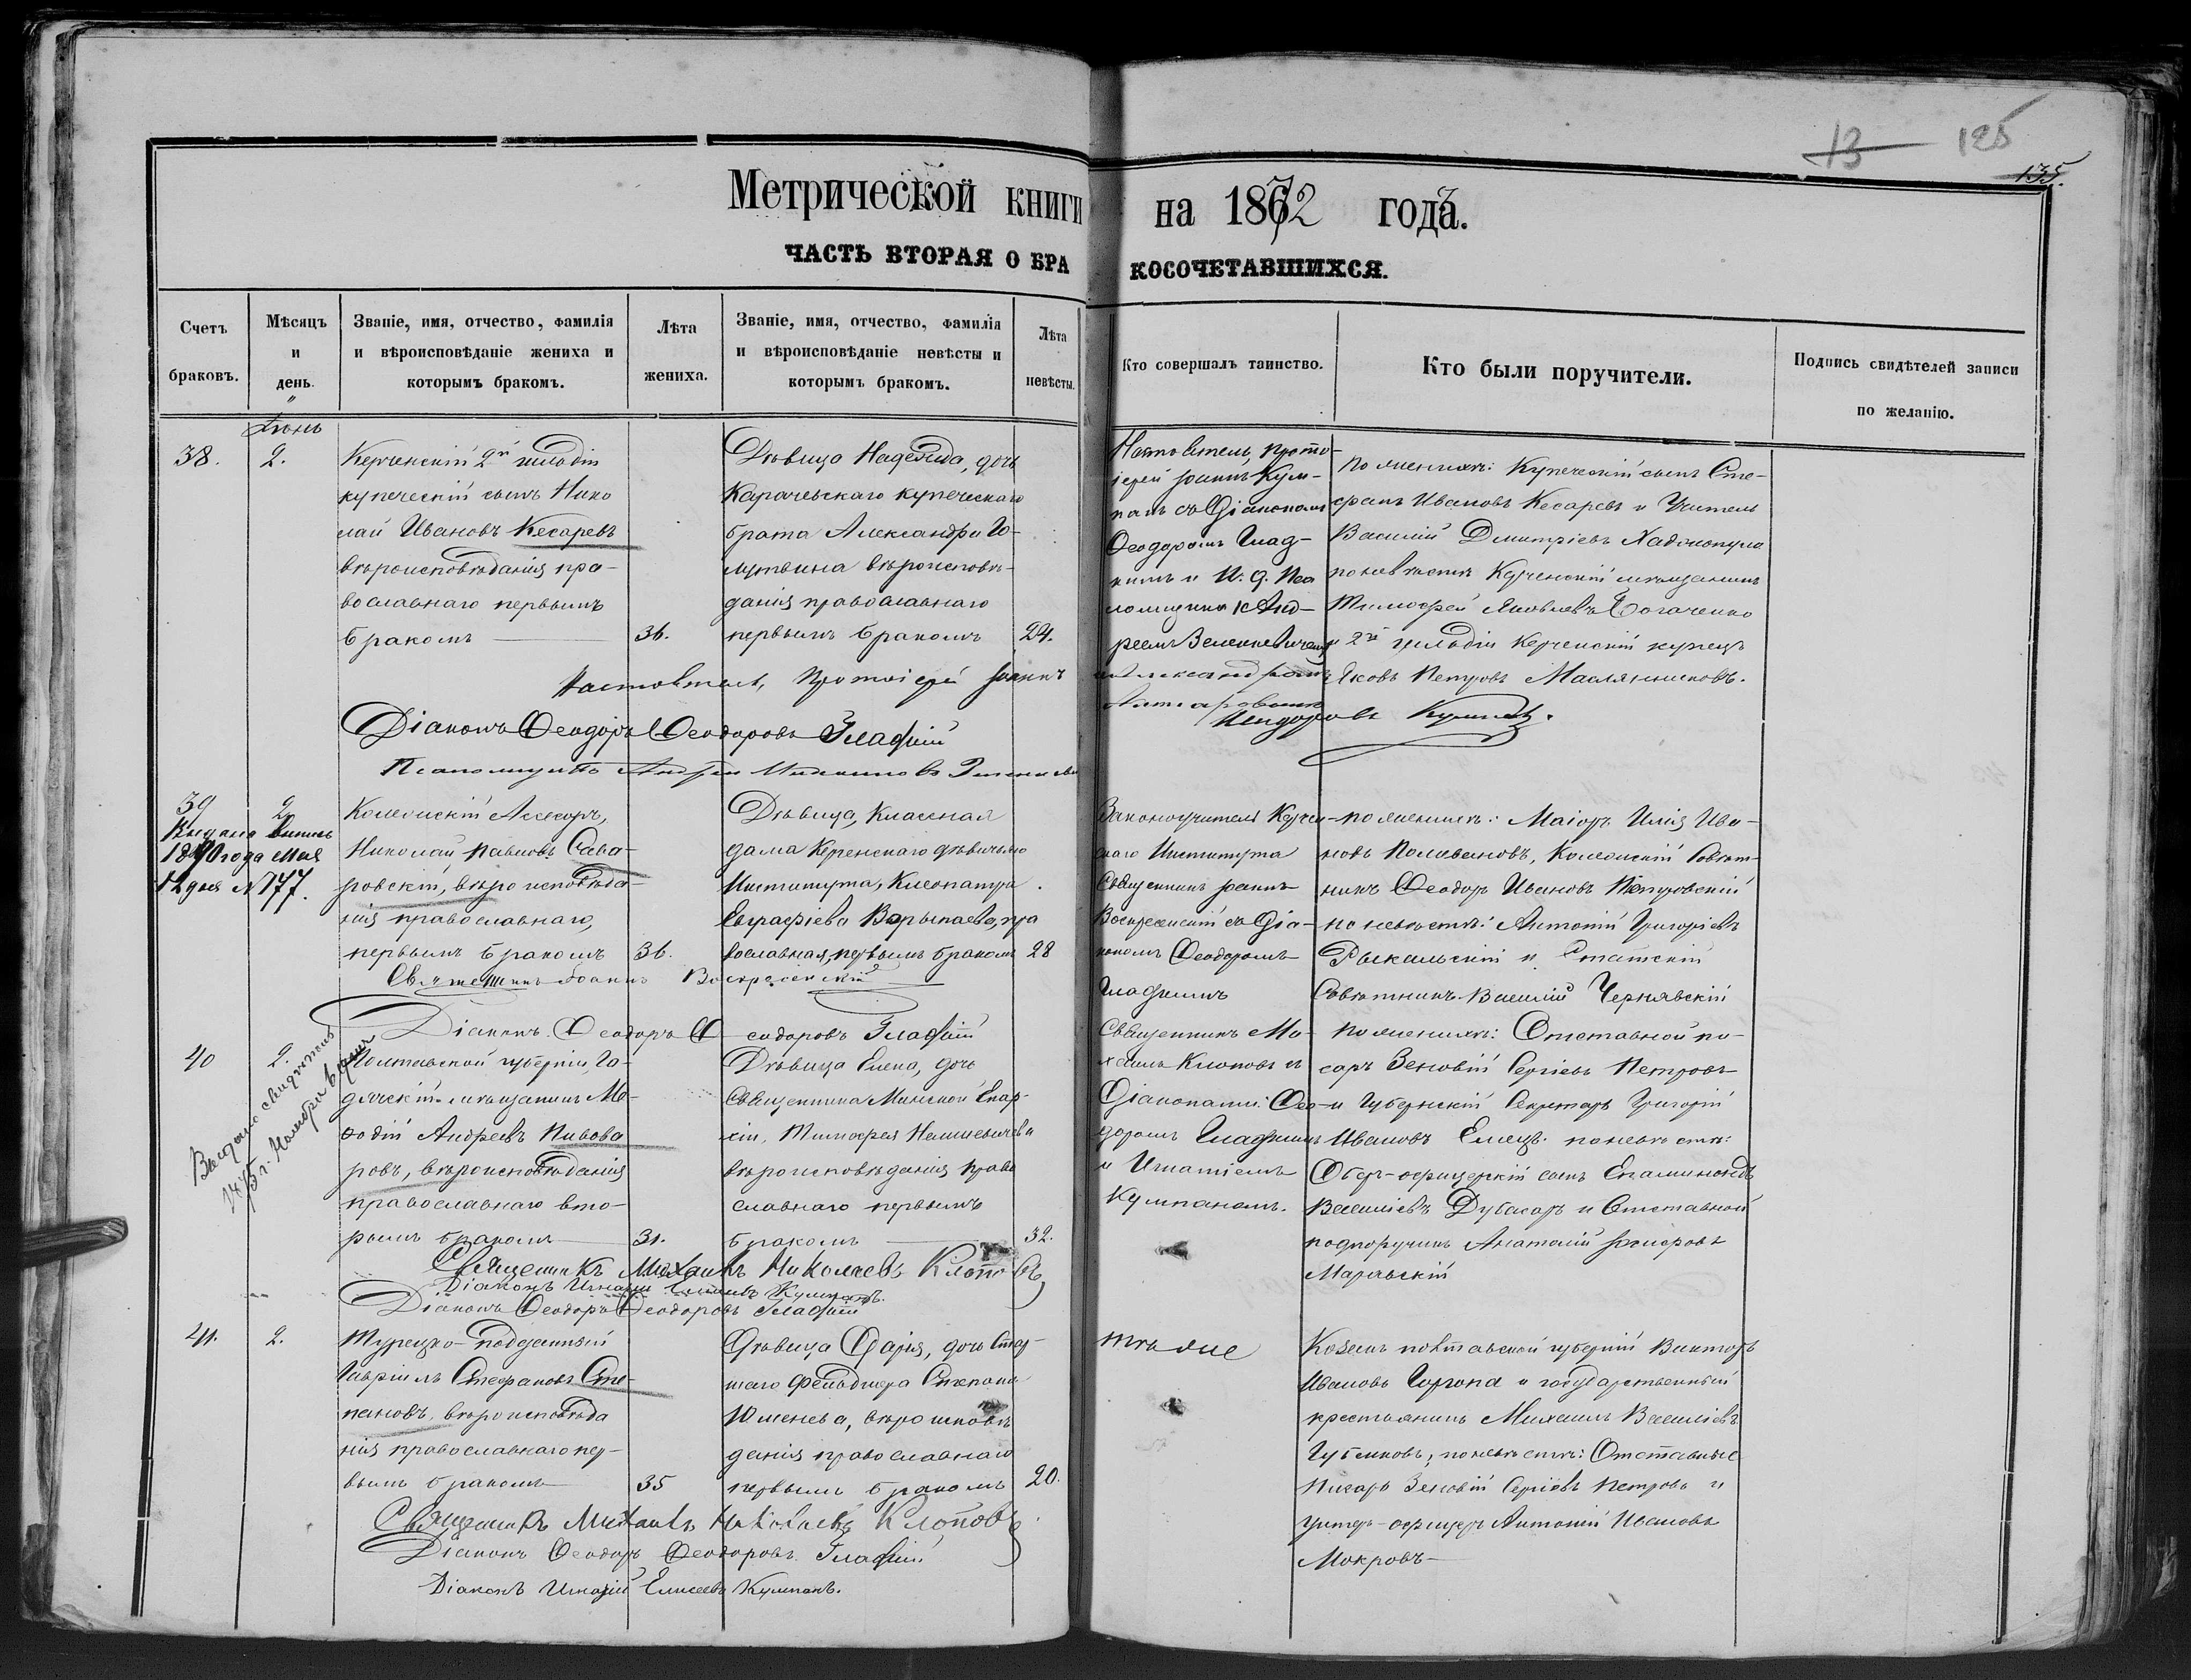 13 125
135.
Метрической книги на 1872 годъ.
ЧАСТЬ ВТОРАЯ О БРАКОСОЧЕТАВШИХСЯ.
Счетъ браковъ.
Мѣсяцъ и день.
Званіе, имя, отчество, фамилія и вѣроисповѣданіе жениха и которымъ бракомъ.
Лѣта жениха.
Званіе, имя, отчество, фамилія и вѣроисповѣданіе невѣсты и которымъ бракомъ.
Лѣта невѣсты.
Кто совершалъ таинство.
Кто были поручители.
Подпись свидѣтелей записи по желанію.
Іюнь
38.
2.
Керченскій 2й гильдіи
купеческій сынъ Нико
лай Ивановъ Кесаревъ
вѣроисповѣданія пра-
вославнаго первымъ
бракомъ
36.
Дѣвица Надежда, дочь
Карачевскаго купеческаго
брата Александра
вѣроисповѣ-
данія православнаго
первымъ бракомъ
24.
Настоятель, Прото-
іерей Іоаннъ Кум-
панъ съ Діакономъ
Ѳеодоромъ Глад-
кимъ и
Анд-
реемъ
Александромъ
по женихѣ: Купеческій сынъ Сте-
фанъ Ивановъ Кесаревъ и Учитель
Василій Дмитріевъ Хаджопуло
по невѣстѣ Керченскій мѣщанинъ
Тимофей Яковлевъ Богаченко
и 2й гильдіи Керченскій купецъ
Яковъ Петровъ Маслянниковъ.
Настоятель, Протоіерей Іоаннъ Исидоровъ Кумпанъ.
Діаконъ Ѳеодоръ Ѳеодоровъ Гладкій
Псаломщикъ Андрей
39
2
Выдана выпись
1890 года Мая
12 дня №177.
Коллежскій Асессоръ,
Николай Павловъ Сава-
ровскій, вѣроисповѣда-
нія православнаго,
первымъ бракомъ
36.
Дѣвица, Классная
дама Керченскаго дѣвичьяго
Института, Клеопатра
Евграфіева Варыпаева, пра
вославная, первымъ бракомъ
28
Законоучитель Керчен-
скаго Института
Священникъ Іоаннъ
Воскресенскій съ Діа-
кономъ Ѳеодоромъ
Гладкимъ
по женихѣ: Маіоръ Илія Ива-
новъ Поливановъ, Коллежскій Совѣт-
никъ Ѳеодоръ Ивановъ Петровскій
по невѣстѣ: Антоній Григоріевъ
Рыкальскій и Статскій
Совѣтникъ Василій Чернявскій
Священникъ Іоаннъ Воскресенскій
Діаконъ Ѳеодоръ Ѳеодоровъ Гладкій
40
2.
Выдано свидѣтельс
1875 г. Ноября
Полтавской губерніи, Га-
дячскій мѣщанинъ Ме-
ѳодій Андреевъ Пивова
ровъ, вѣроисповѣданія
православнаго вто-
рымъ бракомъ
31.
Дѣвица Елена, дочь
Священника Минской Епар-
хіи, Тимофея
вѣроисповѣданія право
славнаго первымъ
бракомъ
32.
Священникъ Ми-
хаилъ Клоповъ съ
Діаконами: Ѳео-
доромъ Гладкимъ
и Игнатіемъ
Кумпаномъ.
по женихѣ: Отставной пи-
сарь Зеновій Сергіевъ Петровъ
и Губернскій Секретарь Григорій
Ивановъ Емецъ. по невѣстѣ:
Оберъ-офицерскій сынъ Епаминондъ
Василіевъ Дубасаръ и Отставной
подпоручикъ Анатолій
Священникъ Михаилъ Николаевъ Клоповъ
Діаконъ Игнатій Елисеевъ Кумпанъ.
Діаконъ Ѳеодоръ Ѳеодоровъ Гладкій
41.
2.
Турецко-подданный
Гавріилъ Стефановъ Сте-
пановъ, вѣроисповѣда
нія православнаго пер-
вымъ бракомъ
35
Дѣвица Дарія, дочь Стар-
шаго Фельдшера Степана
Юженева, вѣроисповѣ
данія православнаго
первымъ бракомъ
20.
тѣ же
Козакъ полтавской губерніи Викторъ
Ивановъ Горгопа и государственный
крестьянинъ Михаилъ Василіевъ
Губенковъ, по невѣстѣ: Отставные
Писарь Зеновій Сергіевъ Петровъ и
унтеръ-офицеръ Антоній Ивановъ
Мокровъ
Священникъ Михаилъ Николаевъ Клоповъ
Діаконъ Ѳеодоръ Ѳеодоровъ Гладкій
Діаконъ Игнатій Елисеевъ Кумпанъ.